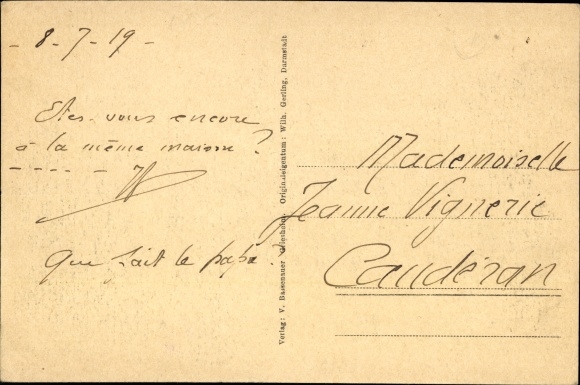 - 8 - 7 - 19 -
Etes-vous encore
à la même maison ?
- - - - -
Que fait le papa ?
Verlag: V. Bassenauer Griesheim. Originaleigentum: Wilh. Gerling, Darmstadt
Mademoiselle
Jeanne Vignerie
Caudéran